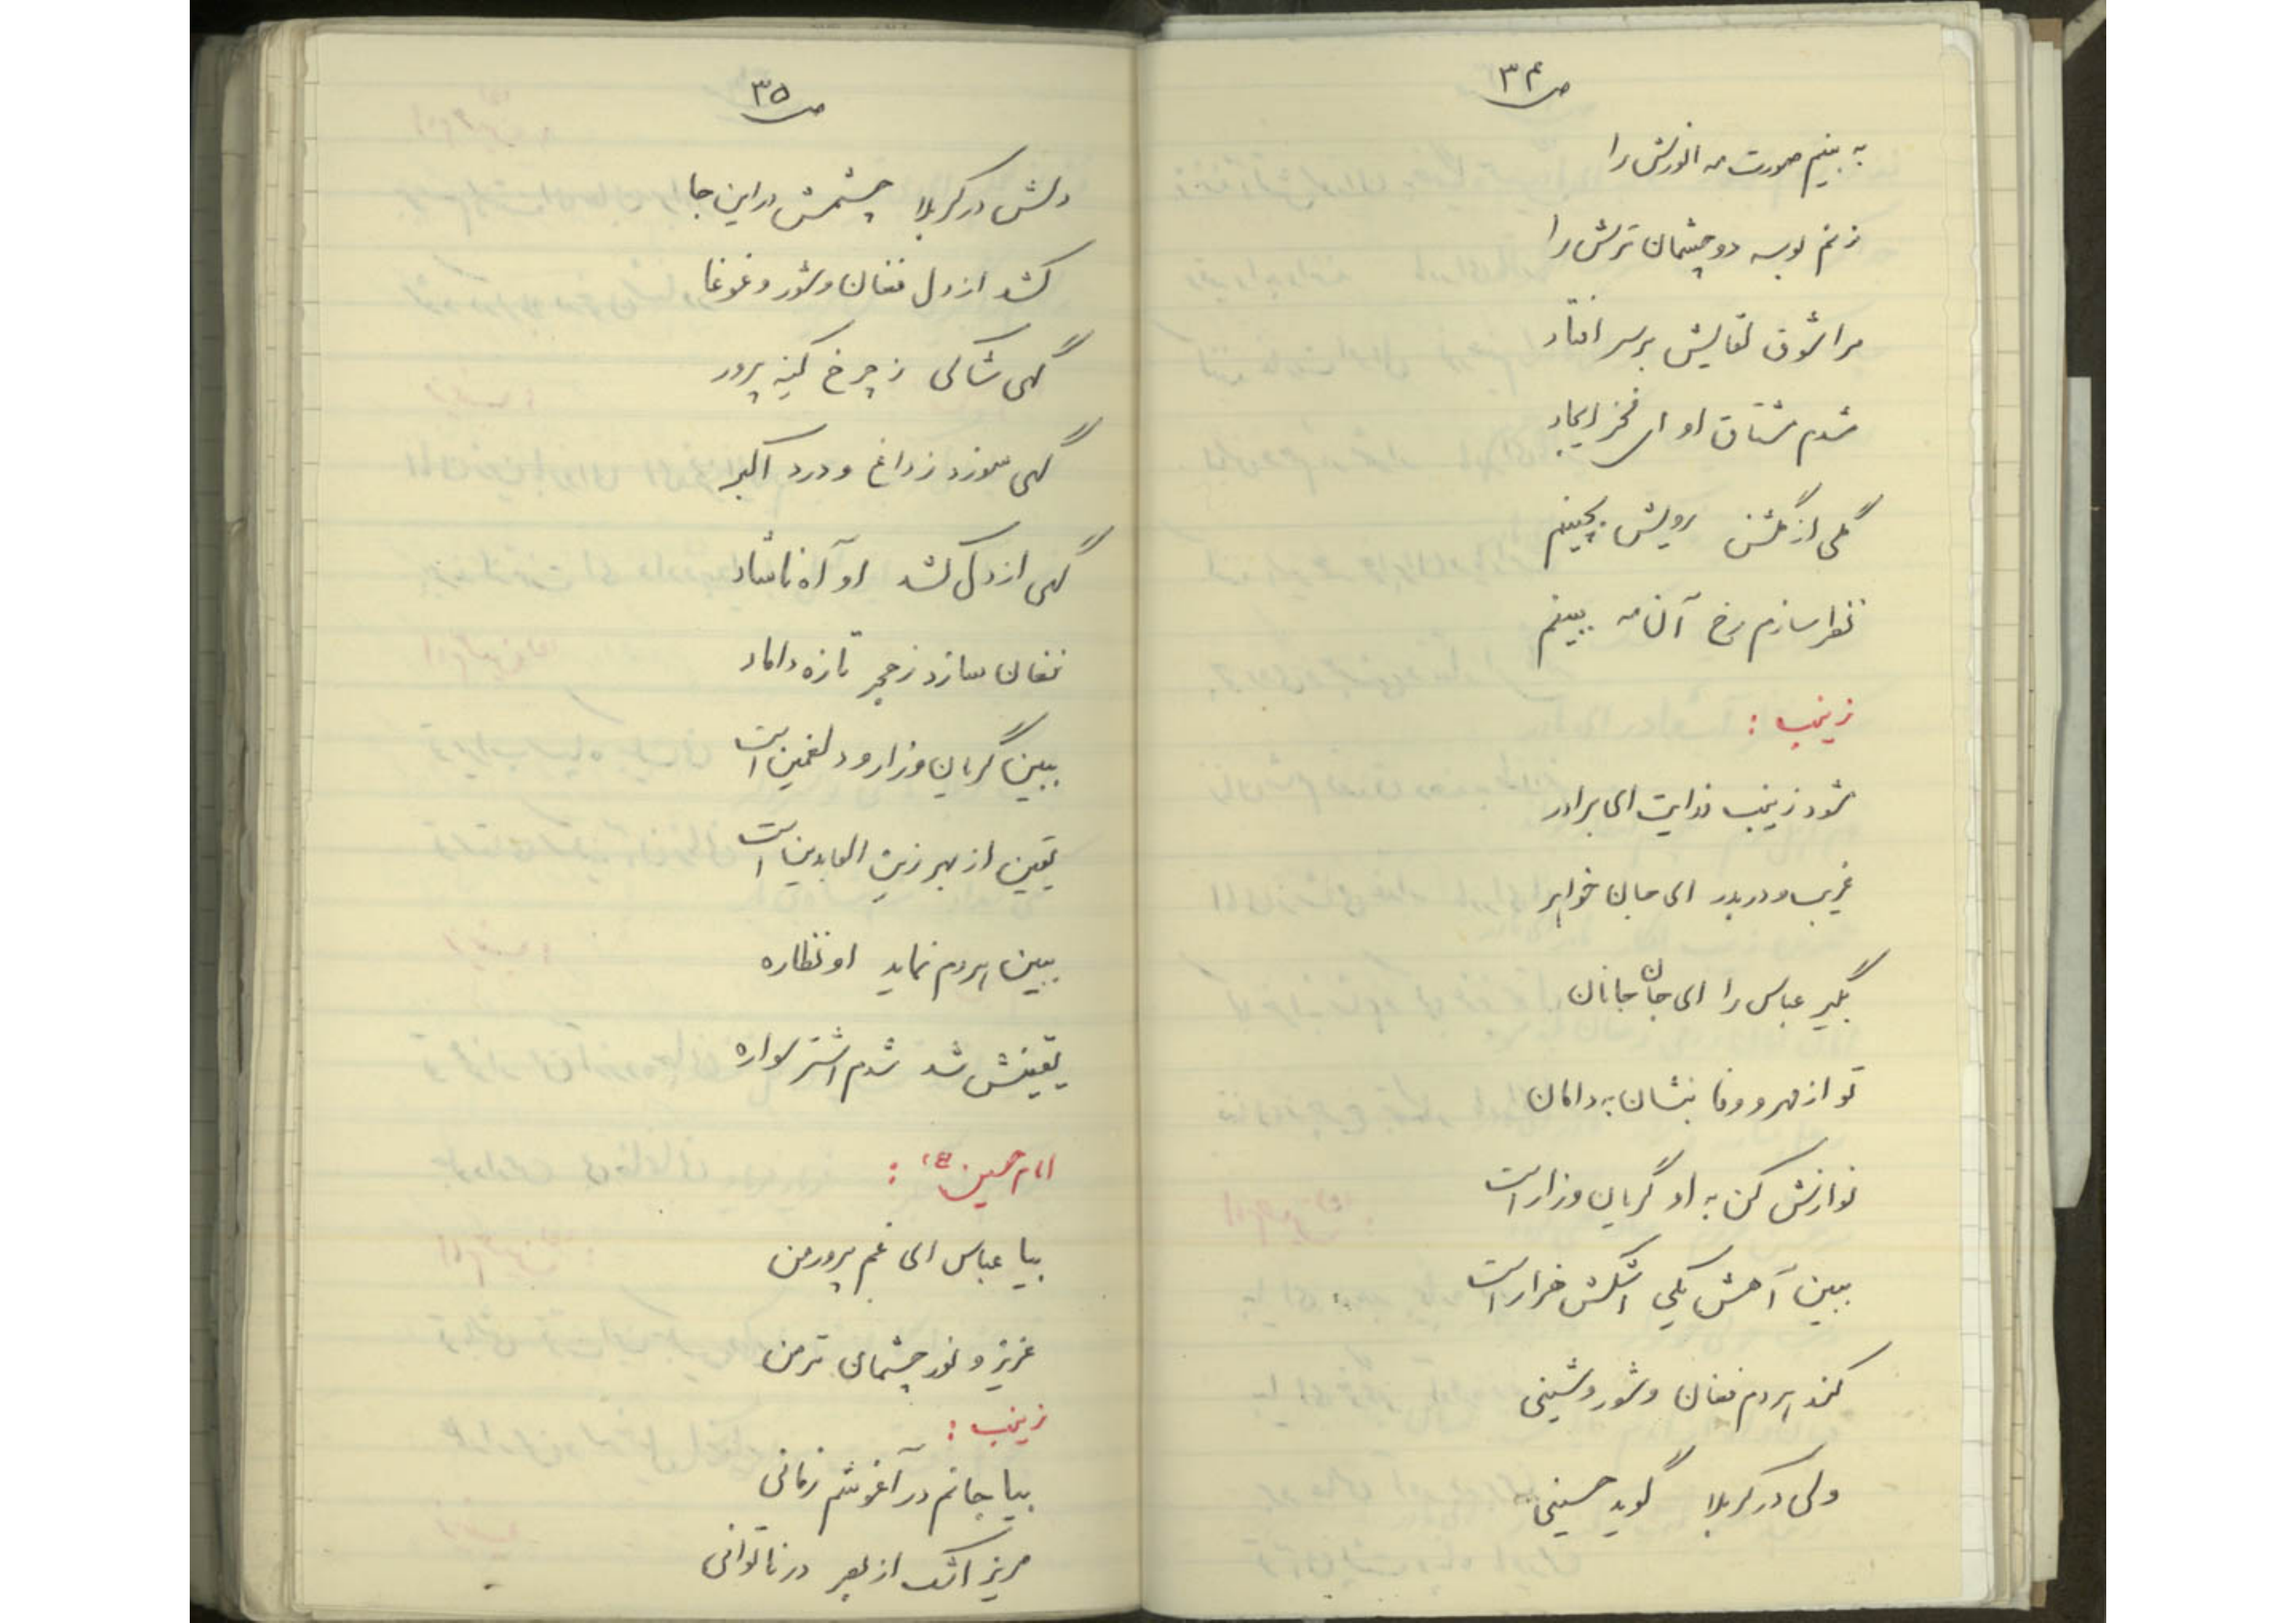 ص ۳۴
به بینم صورت مه انورش را
زنم بوسه دو چشمان ترش را
مرا شوق لقایش بر سر افتاد
شدم مشتاق او ای فخر ایجاد
گلی از گلشن رویش بچینم
نظر سازم رخ آن مه ببینم
زینب :
شود زینب فدایت ای برادر
غریب و دربدر ای جان خواهر
بگیر عباس را ای جان جانان
تو از مهر و وفا بنشان به دامان
نوازش کن به او گریان و زار است
ببین آهش یکی اشکش هزار است
کند هر دم فغان و شور و شینی
ولی در کربلا گوید حسینی
ص ۳۵
دلش در کربلا چشمش در این جا
کشد از دل فغان و شور و غوغا
گهی شاکی ز چرخ کینه پرور
گهی سوزد ز داغ و درد اکبر
گهی از دل کشد او آه ناشاد
فغان سازد ز حجر تازه داماد
ببین گریان و زار و دلغمین است
یقین از بهر زین العابدین است
ببین هر دم نماید او نظاره
یقینش شد شدم اشتر سواره
امام حسین (ع) :
بیا عباس ای غم پرور من
عزیز و نور چشمان تر من
زینب :
بیا جانم در آغوشم زمانی
مریز اشک از بصر در ناتوانی